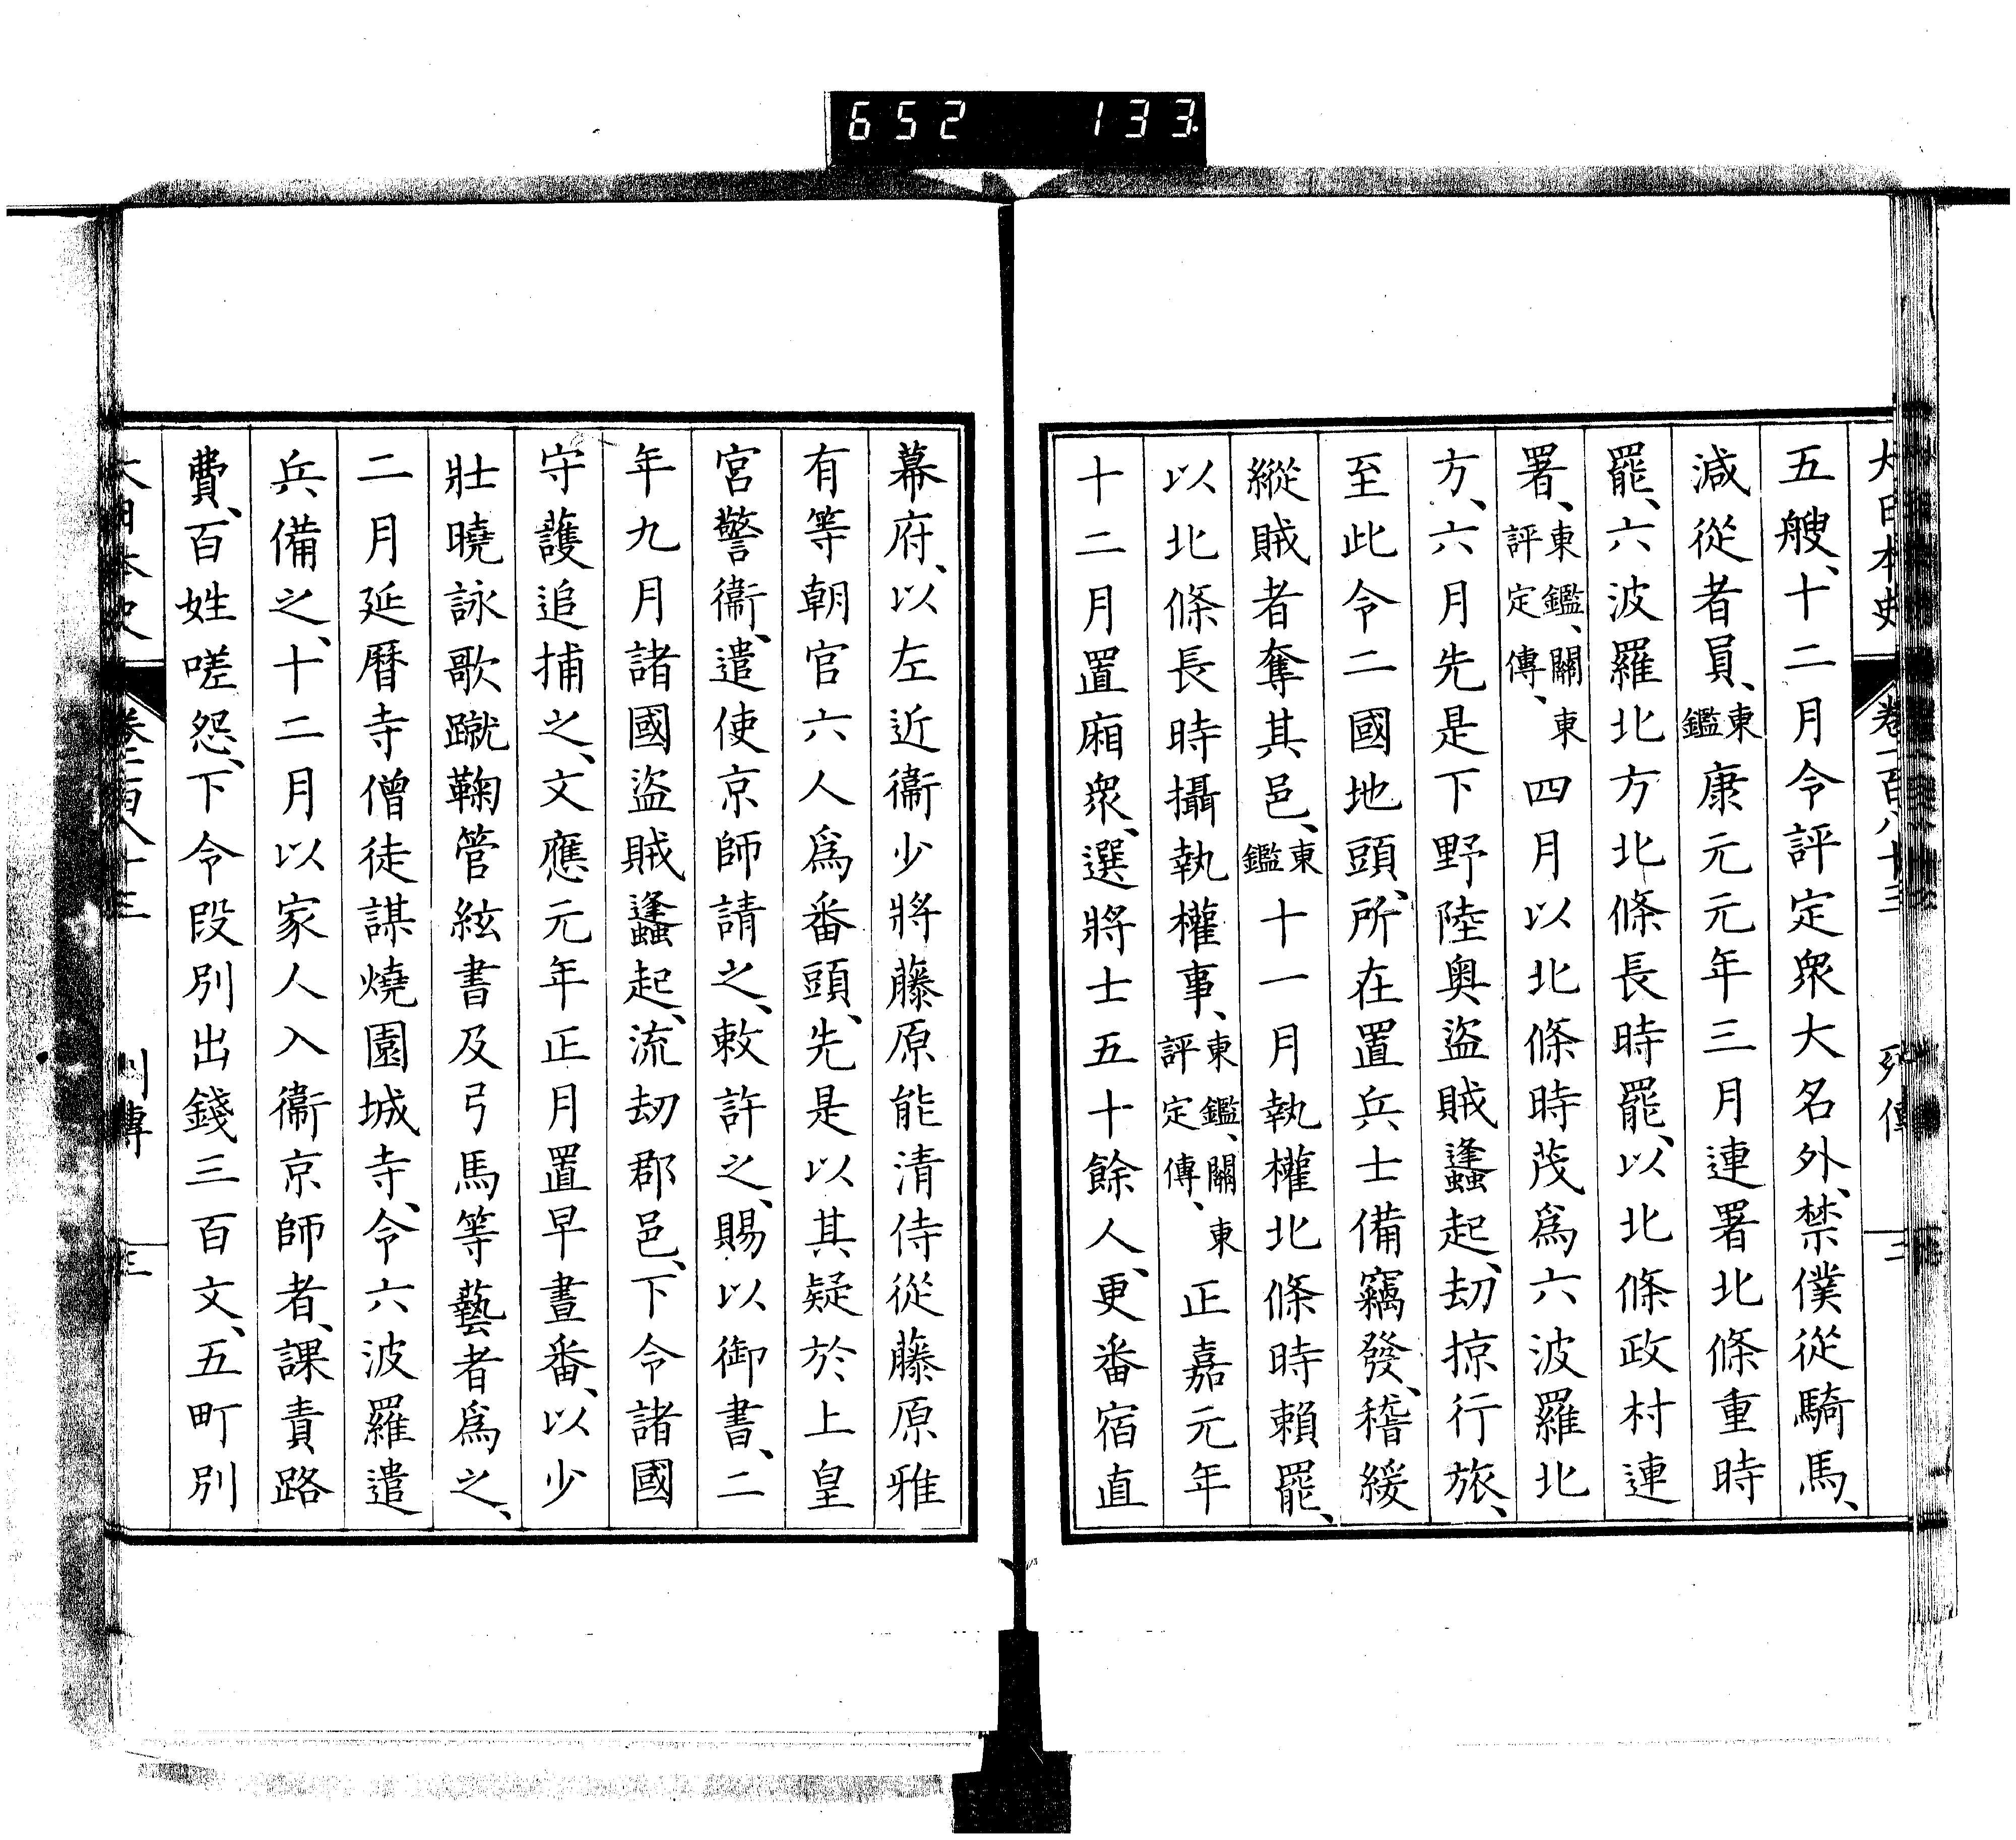 652 133
大日本史 卷一百八十三 列傳 三
五艘、十二月令評定衆大名外、禁僕從騎馬、
減從者員、東鑑康元元年三月連署北條重時
罷、六波羅北方北條長時罷、以北條政村連
署、東鑑、關東評定傳、四月以北條時茂爲六波羅北
方、六月先是下野陸奥盜賊蜂起、劫掠行旅、
至此令二國地頭、所在置兵士備竊發、稽緩
縱賊者奪其邑、東鑑十一月執權北條時賴罷、
以北條長時攝執權事、東鑑、關東評定傳、正嘉元年
十二月置廂衆、選將士五十餘人、更番宿直
幕府、以左近衞少將藤原能清侍從藤原雅
有等朝官六人爲番頭、先是以其疑於上皇
宮警衞、遣使京師請之、敕許之、賜以御書、二
年九月諸國盜賊蜂起、流劫郡邑、下令諸國
守護追捕之、文應元年正月置早晝番、以少
壯曉詠歌蹴鞠管絃書及弓馬等藝者爲之、
二月延暦寺僧徒謀燒園城寺、令六波羅遣
兵備之、十二月以家人入衞京師者、課責路
費、百姓嗟怨、下令段別出錢三百文、五町別
大日本史 卷一百八十三 列傳 三